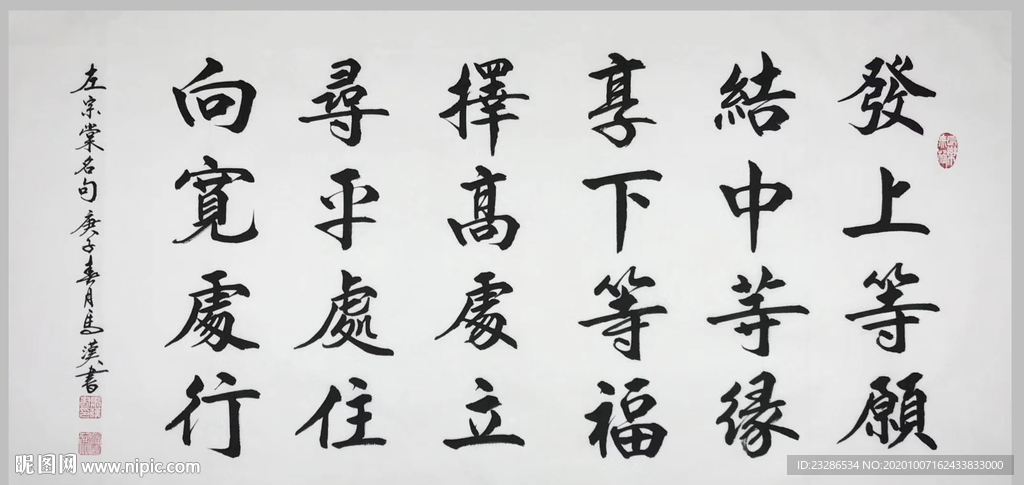 發上等願
結中等缘
享下等福
擇高處立
尋平處住
向寬處行
左宗棠名句庚子春月馬漢書
昵图网 www.nipic.com
ID:23286534 NO:20201007162433833000